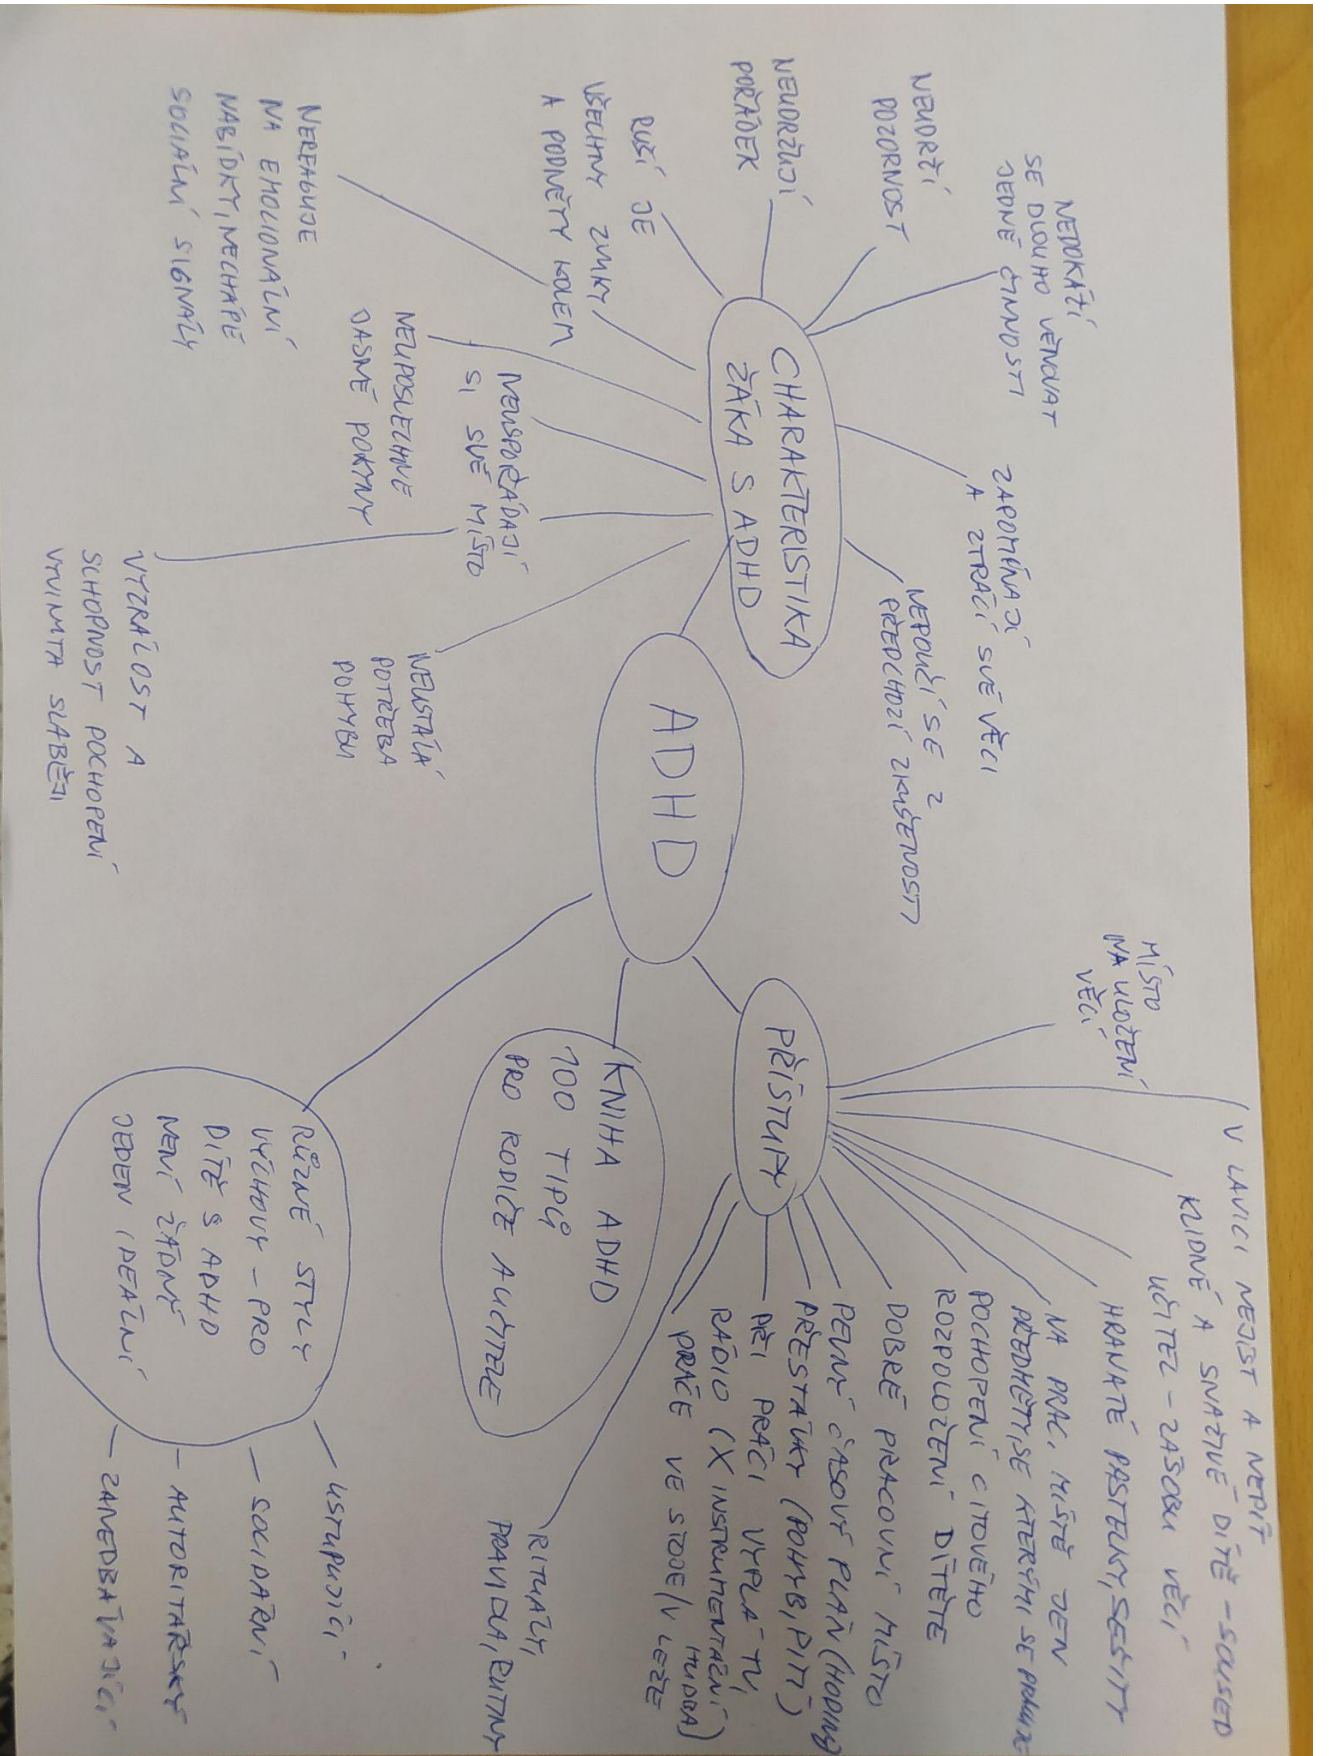 ADHD
CHARAKTERISTIKA
ŽÁKA S ADHD
NEDOKÁŽÍ
SE DLOUHO VĚNOVAT
JEDNÉ ČINNOSTI
NEUDRŽÍ
POZORNOST
NEUDRŽUJÍ
POŘÁDEK
RUŠÍ JE
VŠECHNY ZVUKY
A PODNĚTY KOLEM
NEREAGUJE
NA EMOCIONÁLNÍ
NABÍDKY, NECHÁPE
SOCIÁLNÍ SIGNÁLY
NEUPOSLECHNE
JASNÉ POKYNY
NEUSPOŘÁDAJÍ
SI SVÉ MÍSTO
VYZRÁLOST A
SCHOPNOST POCHOPENÍ
VNÍMÁ SLABĚJI
NEUSTÁLÁ
POTŘEBA
POHYBU
ZAPOMÍNAJÍ
A ZTRÁCÍ SVÉ VĚCI
NEPOUČÍ SE Z
PŘEDCHOZÍ ZKUŠENOSTI
PŘÍSTUPY
MÍSTO
NA ULOŽENÍ
VĚCÍ
V LAVICI NEJÍST A NEPÍT
KLIDNÉ A SNAŽIVÉ DÍTĚ - SOUSED
UČITEL - ZÁSOBU VĚCÍ
HRANATÉ PASTELKY, SEŠITY
NA PRAC. MÍSTĚ JEN
PŘEDMĚTY SE KTERÝMI SE PRACUJE
POCHOPENÍ CITOVÉHO
ROZPOLOŽENÍ DÍTĚTE
DOBRÉ PRACOVNÍ MÍSTO
PEVNÝ ČASOVÝ PLÁN (HODINY)
PŘESTÁVKY (POHYB, PITÍ)
PŘI PRÁCI VYPLÁ TV,
RÁDIO (X INSTRUMENTÁLNÍ
HUDBA)
PRÁCE VE STOJE / V LEŽE
RITUÁLY,
PRAVIDLA, RUTINY
KNIHA ADHD
100 TIPŮ
PRO RODIČE A UČITELE
RŮZNÉ STYLY
VÝCHOVY - PRO
DÍTĚ S ADHD
NENÍ ŽÁDNÝ
JEDEN IDEÁLNÍ
- USTUPUJÍCÍ
- SOLIDÁRNÍ
- AUTORITÁŘSKÝ
- ZANEDBÁVAJÍCÍ